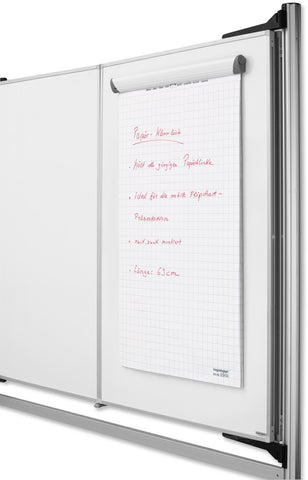 Papier-Klemmleiste
• hält alle gängigen Papierblöcke
• Ideal für die mobile Flipchart-
Präsentation
• ruck zuck montiert
• Länge: 63 cm